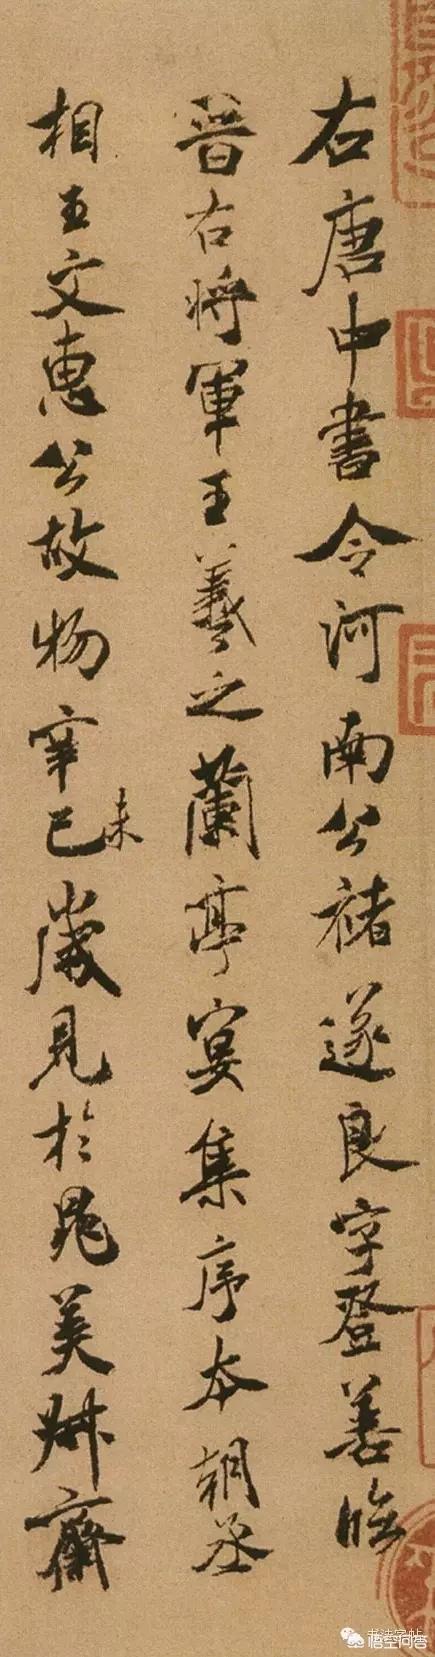 右唐中書令河南公褚遂良字登善臨
晉右將軍王羲之蘭亭宴集序本朝丞
相王文惠公故物辛巳未歲見於晁美叔齋
书法字帖
悟空问答